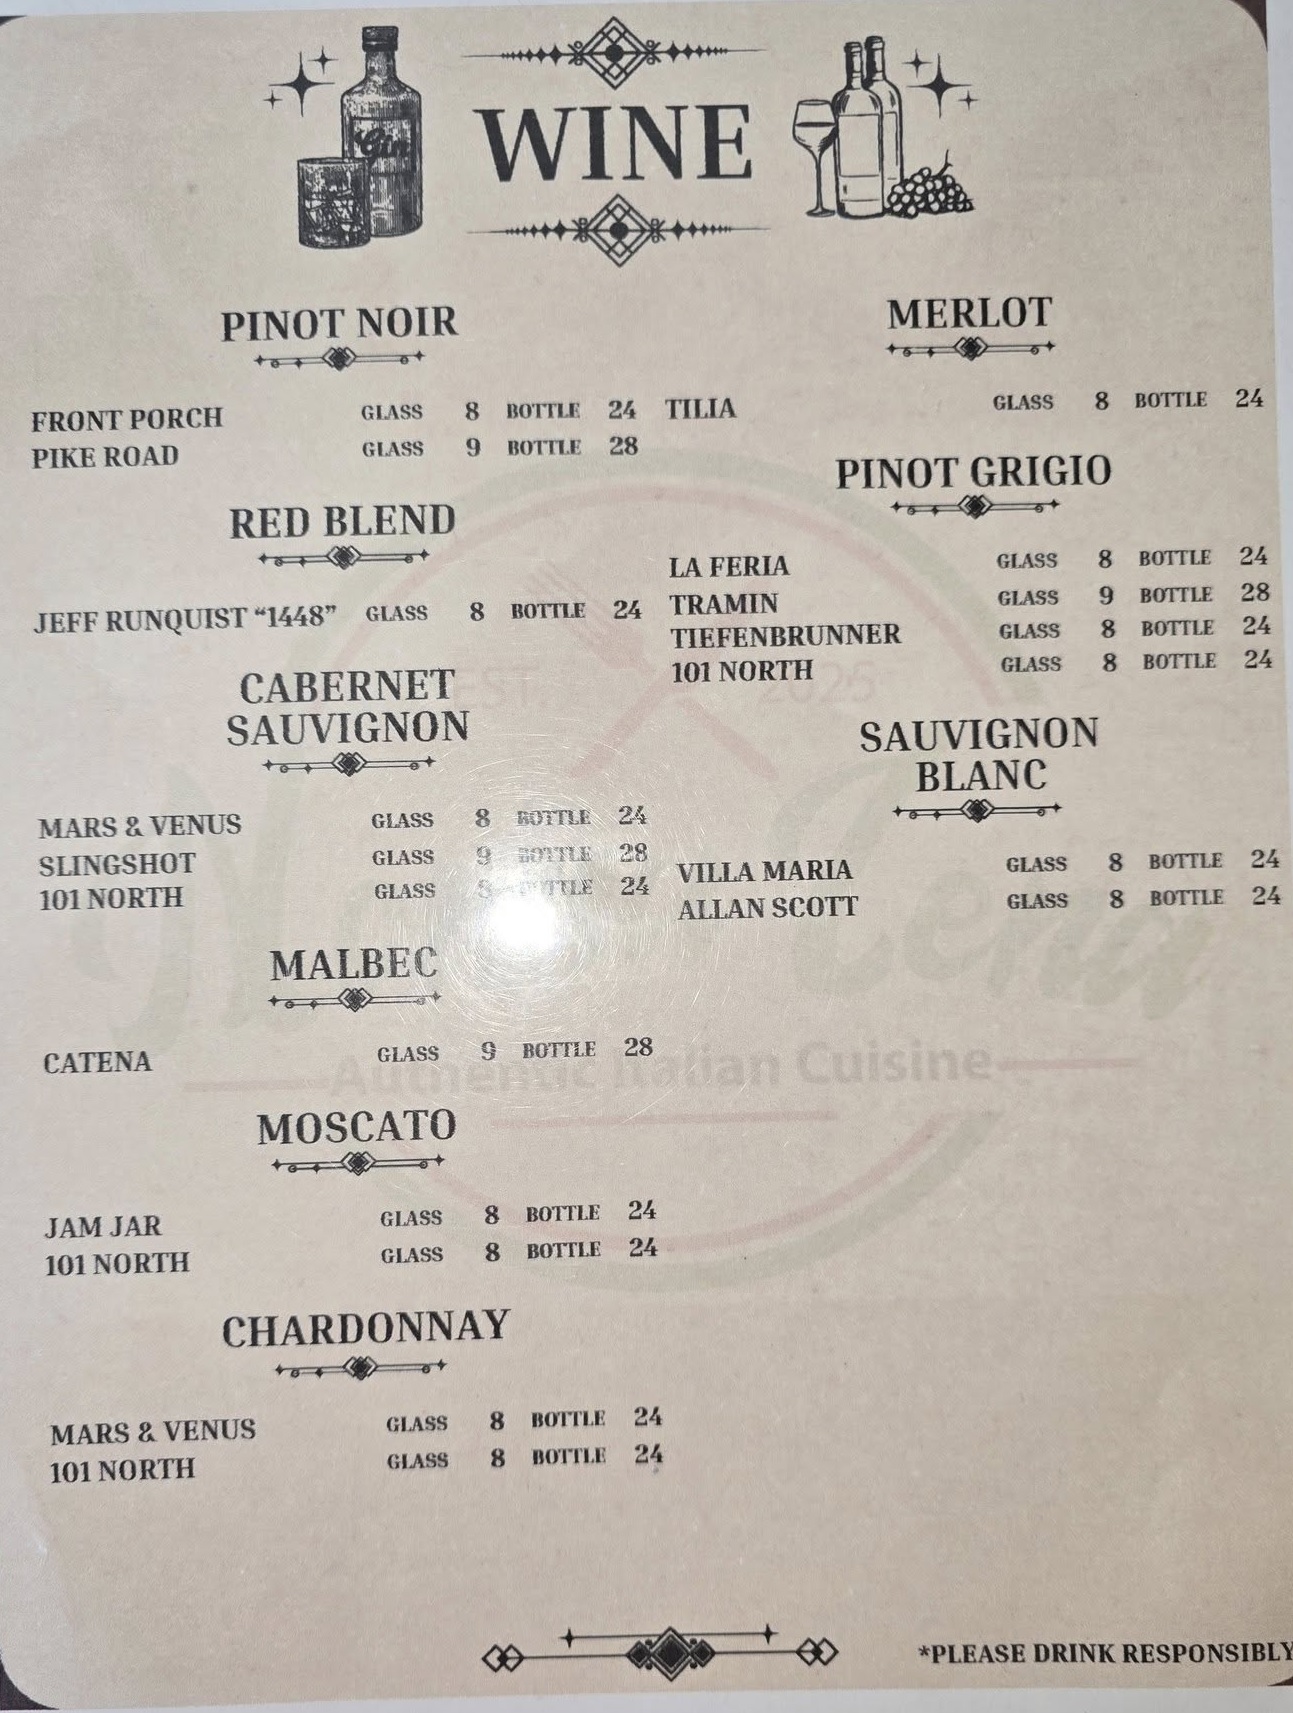 Gin
WINE
PINOT NOIR
FRONT PORCH GLASS 8 BOTTLE 24
PIKE ROAD GLASS 9 BOTTLE 28
RED BLEND
JEFF RUNQUIST “1448” GLASS 8 BOTTLE 24
CABERNET
SAUVIGNON
MARS & VENUS GLASS 8 BOTTLE 24
SLINGSHOT GLASS 9 BOTTLE 28
101 NORTH GLASS 8 BOTTLE 24
MALBEC
CATENA GLASS 9 BOTTLE 28
MOSCATO
JAM JAR GLASS 8 BOTTLE 24
101 NORTH GLASS 8 BOTTLE 24
CHARDONNAY
MARS & VENUS GLASS 8 BOTTLE 24
101 NORTH GLASS 8 BOTTLE 24
MERLOT
TILIA GLASS 8 BOTTLE 24
PINOT GRIGIO
LA FERIA GLASS 8 BOTTLE 24
TRAMIN GLASS 9 BOTTLE 28
TIEFENBRUNNER GLASS 8 BOTTLE 24
101 NORTH GLASS 8 BOTTLE 24
SAUVIGNON
BLANC
VILLA MARIA GLASS 8 BOTTLE 24
ALLAN SCOTT GLASS 8 BOTTLE 24
EST. 2025
Authentic Italian Cuisine
*PLEASE DRINK RESPONSIBLY